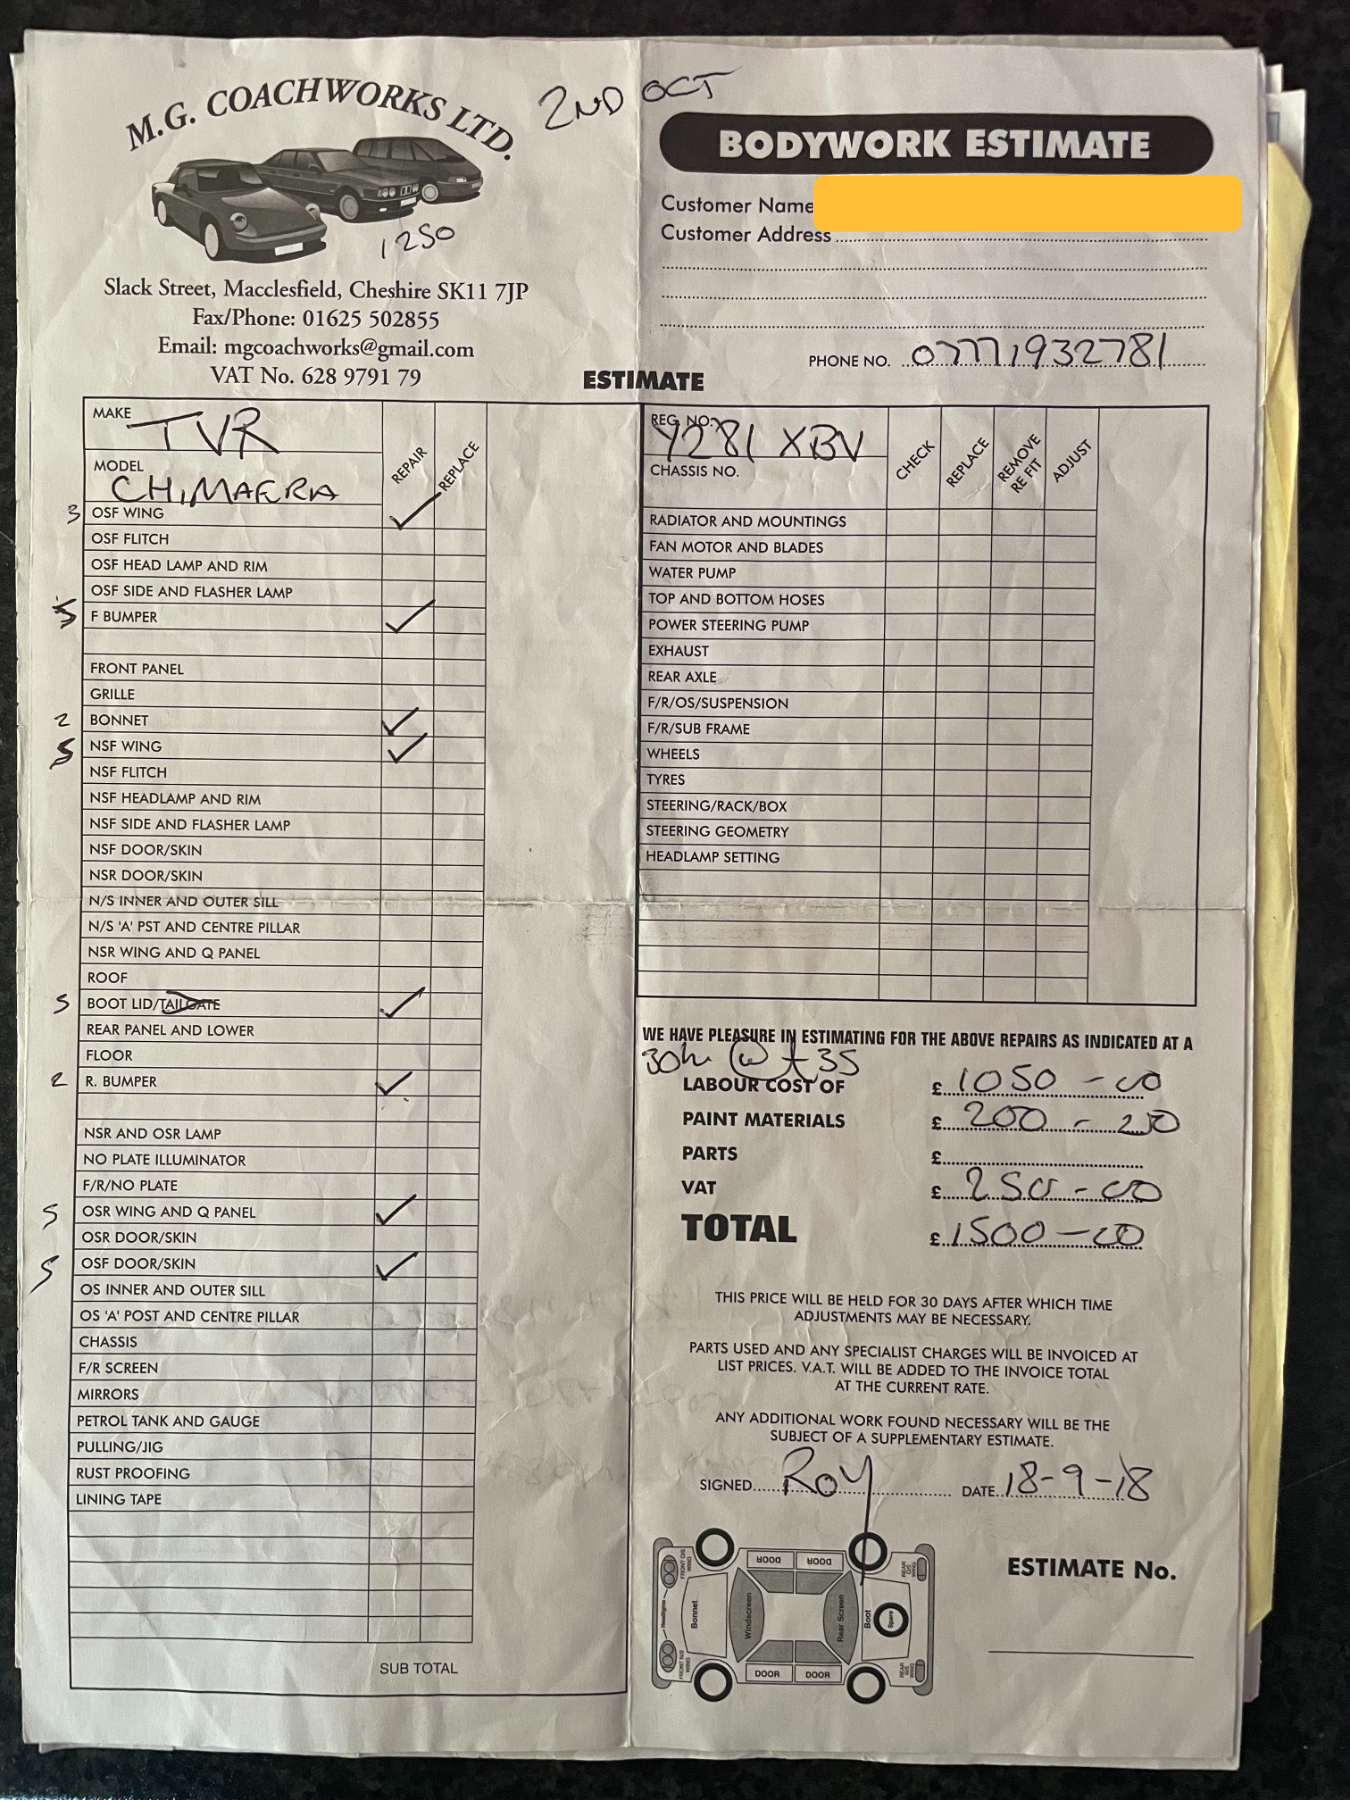 M.G. COACHWORKS LTD.
2ND OCT
1250
Slack Street, Macclesfield, Cheshire SK11 7JP
Fax/Phone: 01625 502855
Email: mgcoachworks@gmail.com
VAT No. 628 9791 79
BODYWORK ESTIMATE
Customer Name
Customer Address
PHONE NO. 07771932781
ESTIMATE
MAKE TVR
MODEL CHIMAERA
REPAIR REPLACE
3 OSF WING ✓
OSF FLITCH
OSF HEAD LAMP AND RIM
OSF SIDE AND FLASHER LAMP
5 F BUMPER ✓
FRONT PANEL
GRILLE
2 BONNET ✓
5 NSF WING ✓
NSF FLITCH
NSF HEADLAMP AND RIM
NSF SIDE AND FLASHER LAMP
NSF DOOR/SKIN
NSR DOOR/SKIN
N/S INNER AND OUTER SILL
N/S 'A' PST AND CENTRE PILLAR
NSR WING AND Q PANEL
ROOF
5 BOOT LID/TAILGATE ✓
REAR PANEL AND LOWER
FLOOR
2 R. BUMPER ✓
NSR AND OSR LAMP
NO PLATE ILLUMINATOR
F/R/NO PLATE
5 OSR WING AND Q PANEL ✓
OSR DOOR/SKIN
5 OSF DOOR/SKIN ✓
OS INNER AND OUTER SILL
OS 'A' POST AND CENTRE PILLAR
CHASSIS
F/R SCREEN
MIRRORS
PETROL TANK AND GAUGE
PULLING/JIG
RUST PROOFING
LINING TAPE
SUB TOTAL
REG. NO. Y281 XBV
CHASSIS NO.
CHECK REPLACE REMOVE RE FIT ADJUST
RADIATOR AND MOUNTINGS
FAN MOTOR AND BLADES
WATER PUMP
TOP AND BOTTOM HOSES
POWER STEERING PUMP
EXHAUST
REAR AXLE
F/R/OS/SUSPENSION
F/R/SUB FRAME
WHEELS
TYRES
STEERING/RACK/BOX
STEERING GEOMETRY
HEADLAMP SETTING
WE HAVE PLEASURE IN ESTIMATING FOR THE ABOVE REPAIRS AS INDICATED AT A
30hr @ £35
LABOUR COST OF £ 1050-00
PAINT MATERIALS £ 200-00
PARTS £
VAT £ 250-00
TOTAL £ 1500-00
THIS PRICE WILL BE HELD FOR 30 DAYS AFTER WHICH TIME
ADJUSTMENTS MAY BE NECESSARY.
PARTS USED AND ANY SPECIALIST CHARGES WILL BE INVOICED AT
LIST PRICES. V.A.T. WILL BE ADDED TO THE INVOICE TOTAL
AT THE CURRENT RATE.
ANY ADDITIONAL WORK FOUND NECESSARY WILL BE THE
SUBJECT OF A SUPPLEMENTARY ESTIMATE.
SIGNED Roy DATE 18-9-18
DOOR DOOR
FRONT O/S WING
REAR O/S WING
Headlights
Bonnet
Windscreen
Rear Screen
Boot
Spare
FRONT N/S WING
REAR N/S WING
DOOR DOOR
ESTIMATE No.